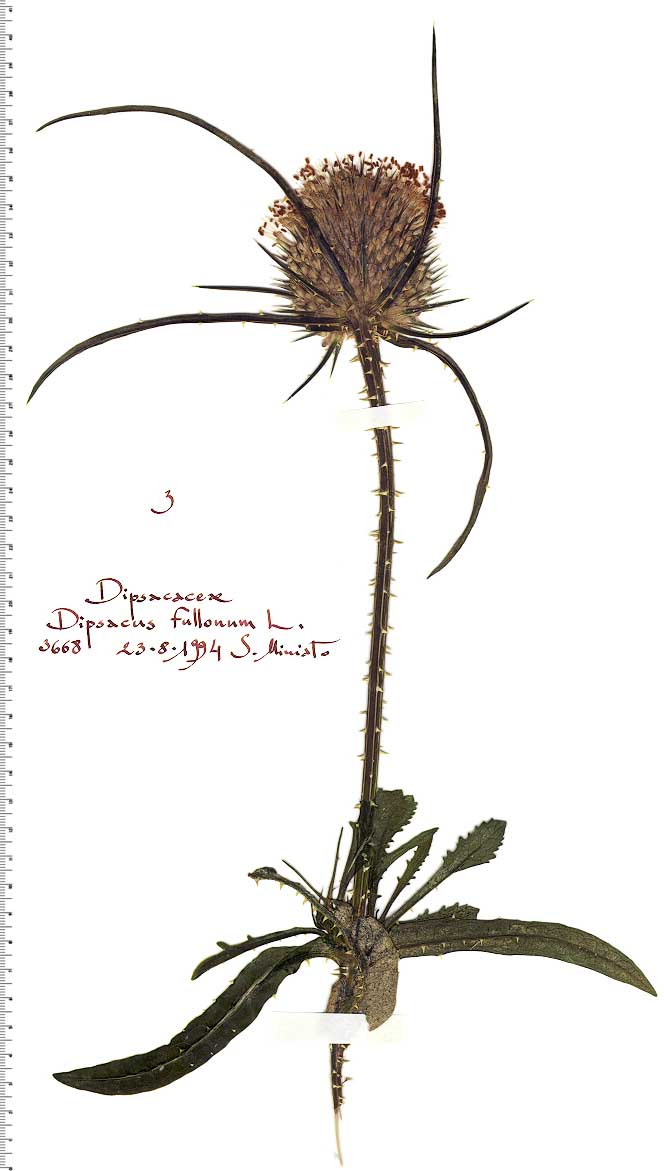 3
Dipsacaceæ
Dipsacus fullonum L.
3668 23.8.1994 S. Miniato